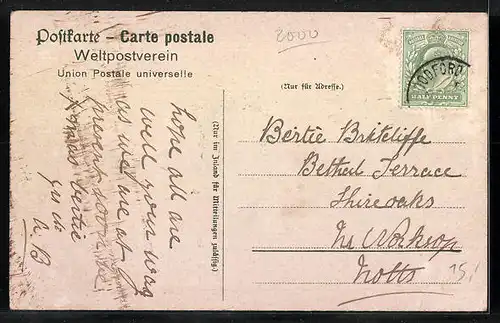 2000
Postkarte - Carte postale
Weltpostverein
Union Postale universelle
(Nur für Adresse.)
(Nur im Inland für Mitteilungen zulässig.)
HALF PENNY
hope all are
well your way
as we are at
present
Bertie
A B
Bertie
Bethel Terrace
Shireoaks
Nr Worksop
Notts
15.